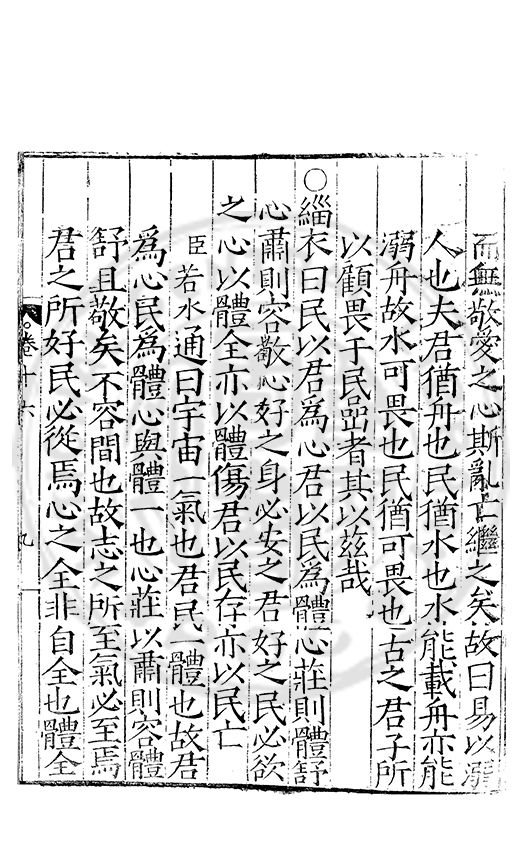 而無敬愛之心斯亂亡繼之矣故曰易以溺
人也夫君猶舟也民猶水也水能載舟亦能
溺舟故水可畏也民猶可畏也古之君子所
以顧畏于民嵒者其以茲哉
○緇衣曰民以君為心君以民為體心莊則體舒
心肅則容敬心好之身必安之君好之民必欲
之心以體全亦以體傷君以民存亦以民亡
臣若水通曰宇宙一氣也君民一體也故君
為心民為體心與體一也心莊以肅則容體
舒且敬矣不容間也故志之所至氣必至焉
君之所好民必從焉心之全非自全也體全
卷十六
九